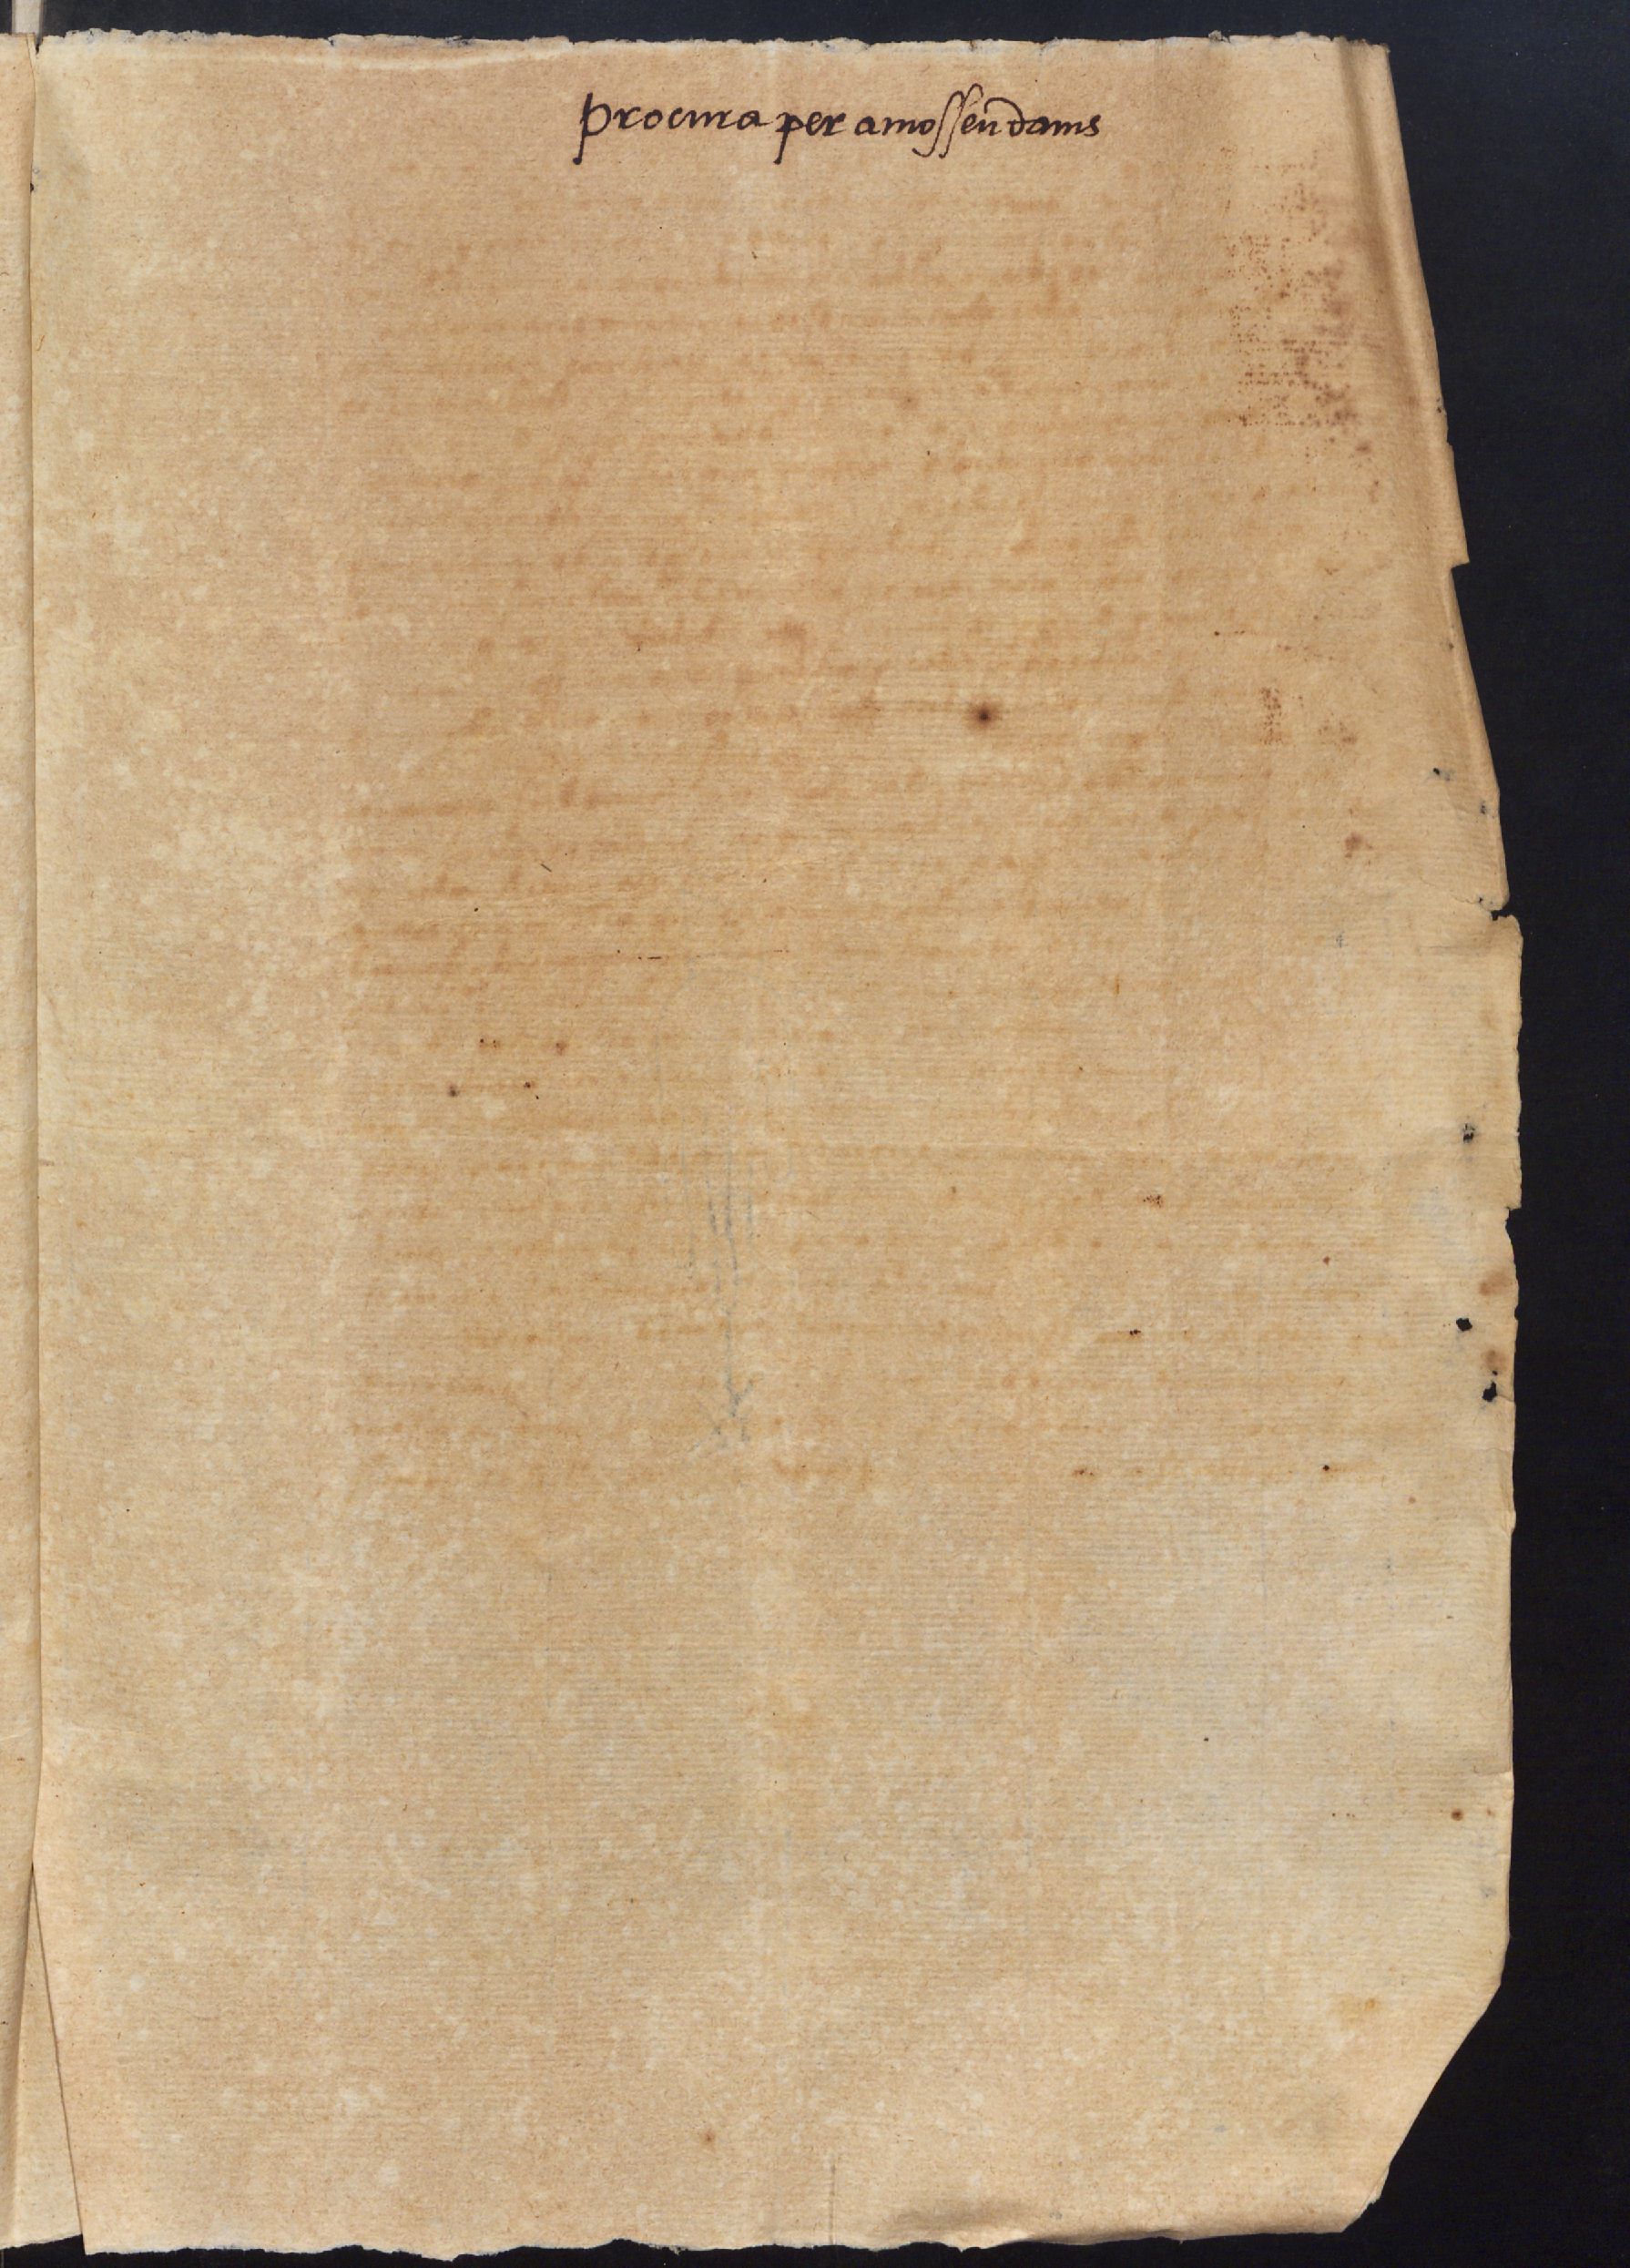 procura per a mossen dams